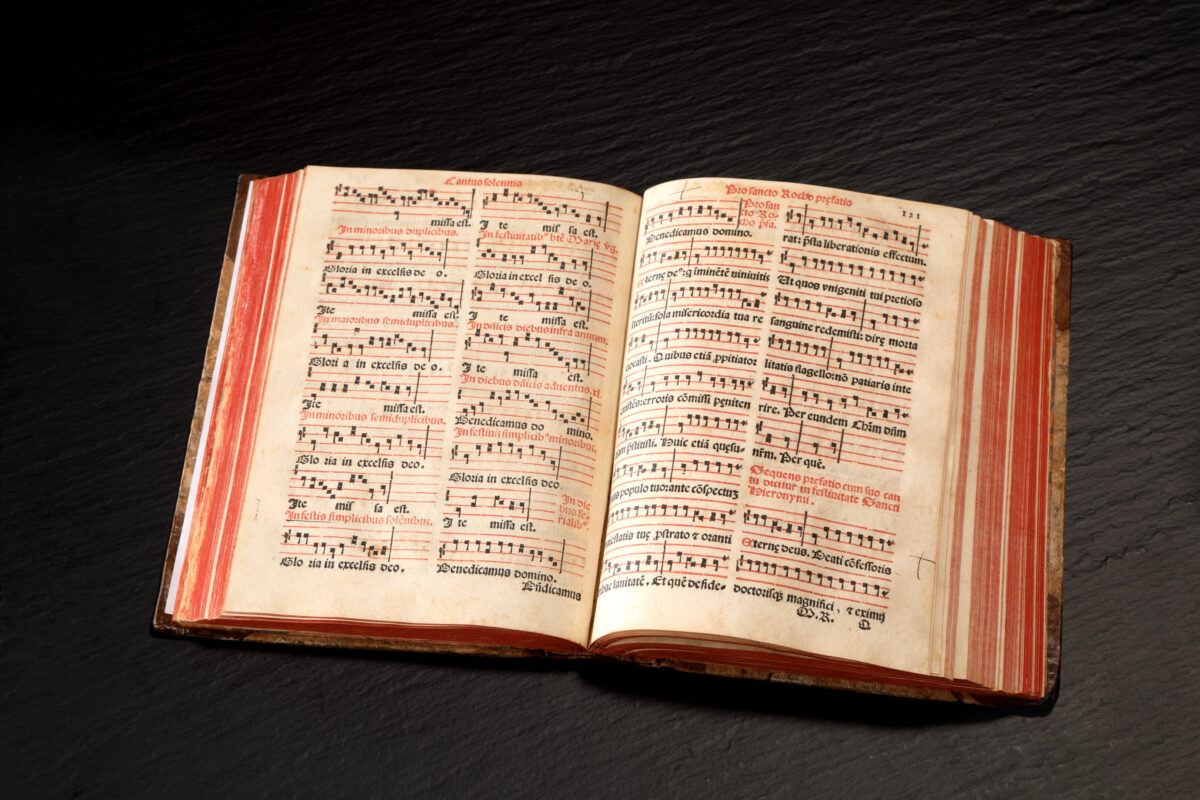 Cantus solennia
missa est.
In minoribus duplicibus.
Gloria in excelsis de o.
Ite missa est.
In maioribus semiduplicibus.
Glori a in excelsis de o.
Ite missa est.
In minoribus semiduplicibus.
Glo ria in excelsis deo.
Ite mis sa est.
In festis simplicibus solẽnibus.
Glo ria in excelsis deo.
I te mis sa est.
In festiuitatibꝰ btẽ Marię vg.
Gloria in excel sis de o.
I te missa est.
In dñicis diebus infra annum.
I te missa est.
In diebus dñicis aduentus. xl.
Benedicamus do mino.
In festiuis simplicibꝰ minoribus.
Gloria in excelsis deo.
In die
bus fe
rialibꝰ.
I te missa est.
Benedicamus domino.
Bñdicamus
Pro sancto Rocho pręfatio
121
Pro san
cto Ro
cho pfa.
Benedicamus domino.
Eternę deꝰ: q iminẽtẽ niniuitis
iteritũ: sola misericordia tua re
uocasti. Quibus etiã ppitiator
existẽs: erroris cõmissi pęniten
tiam pstitisti. Huic etiã quęsu
mus populo tuo rante cõspectuʒ
maiestatis tuę pstrato ⁊ oranti
tribue sanitatẽ. Et quẽ defide-
rat: psta liberationis effectum.
Et quos vnigeniti tui pretioso
sanguine redemisti: dirę morta
litatis flagello: nõ patiaris inte
rire. Per eundem Chm dñm
nrm. Per quẽ.
Sequens pręfatio cum suo can
tu dicitur in festiuitate Sancti
Hieronymi.
Eternę deus. Beati cõfessoris
doctorisqʒ magnifici, ⁊ eximij
M. R.